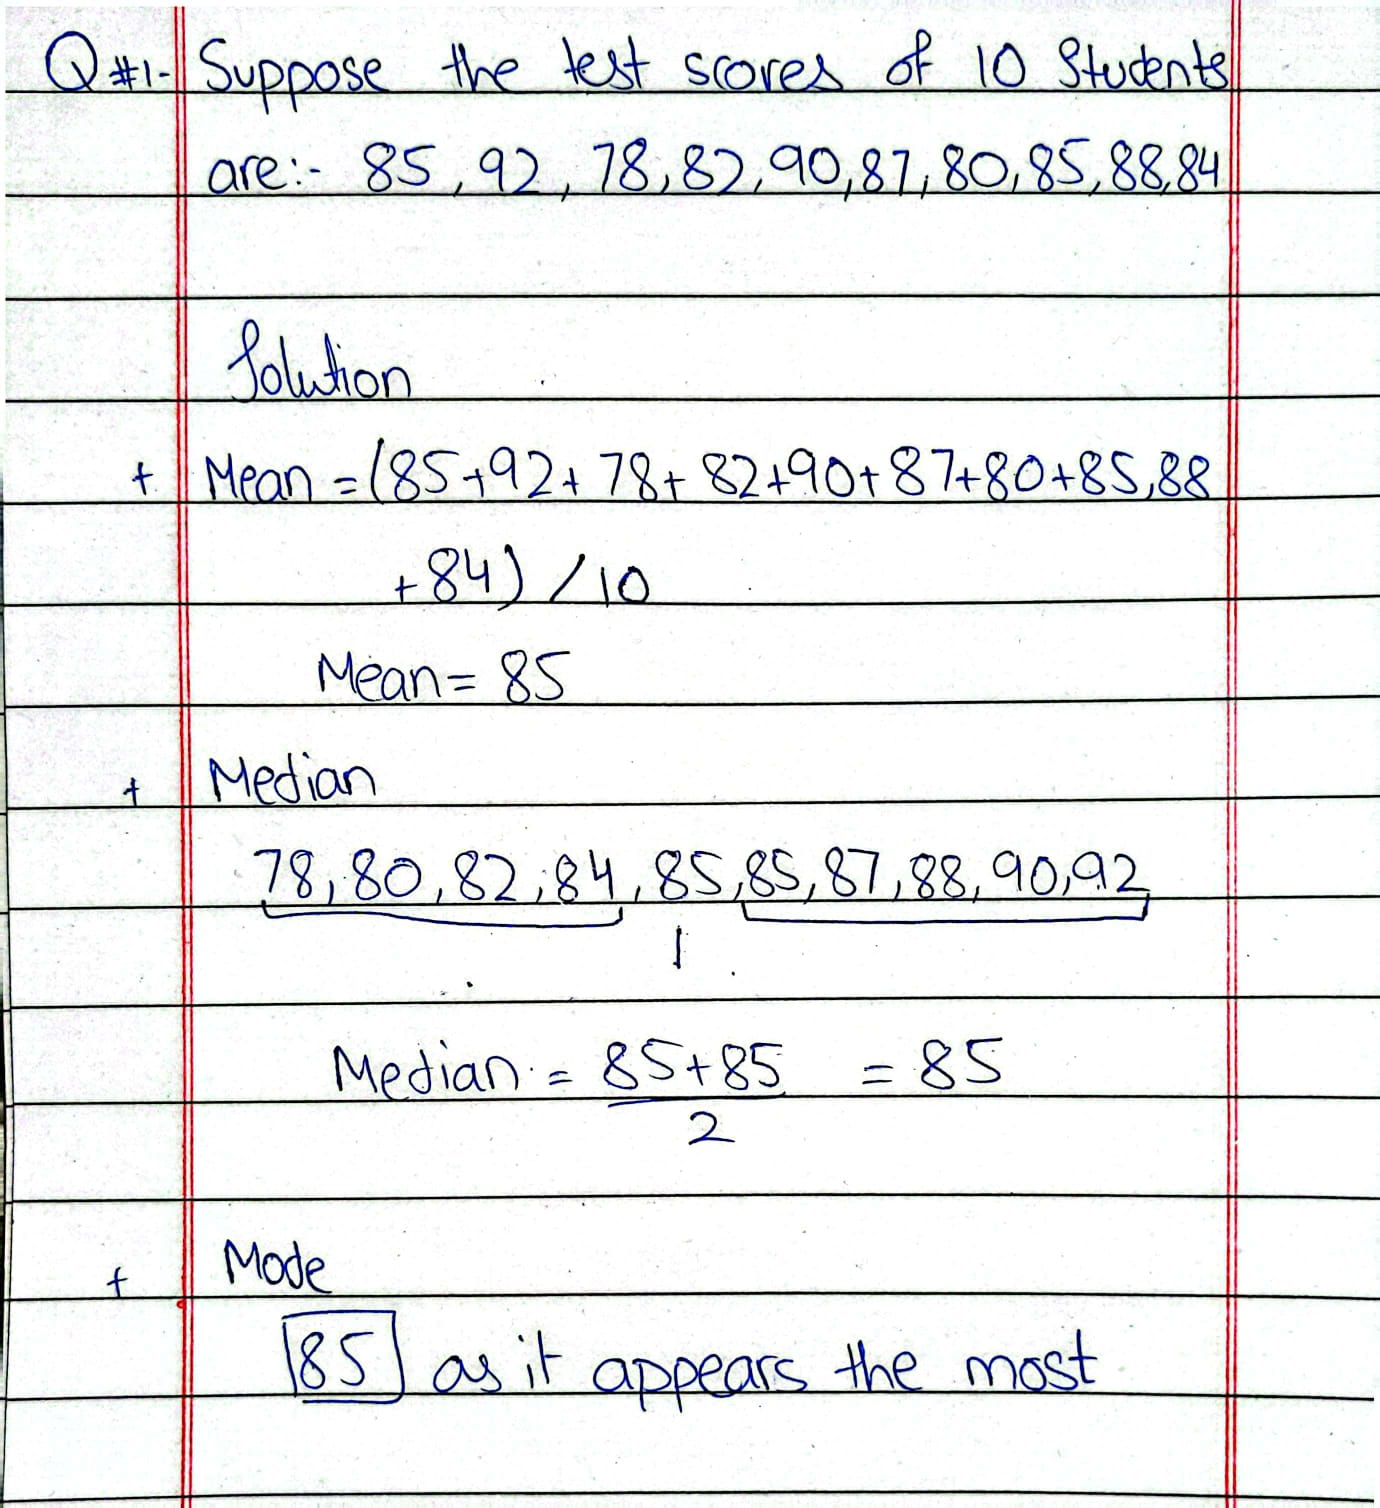 Q#1- Suppose the test scores of 10 Students
are:- 85, 92, 78, 82, 90, 87, 80, 85, 88, 84
Solution
+ Mean = (85+92+78+82+90+87+80+85,88
+84) /10
Mean = 85
+ Median
78, 80, 82, 84, 85, 85, 87, 88, 90, 92
1
Median = 85+85 = 85
2
+ Mode
85 as it appears the most